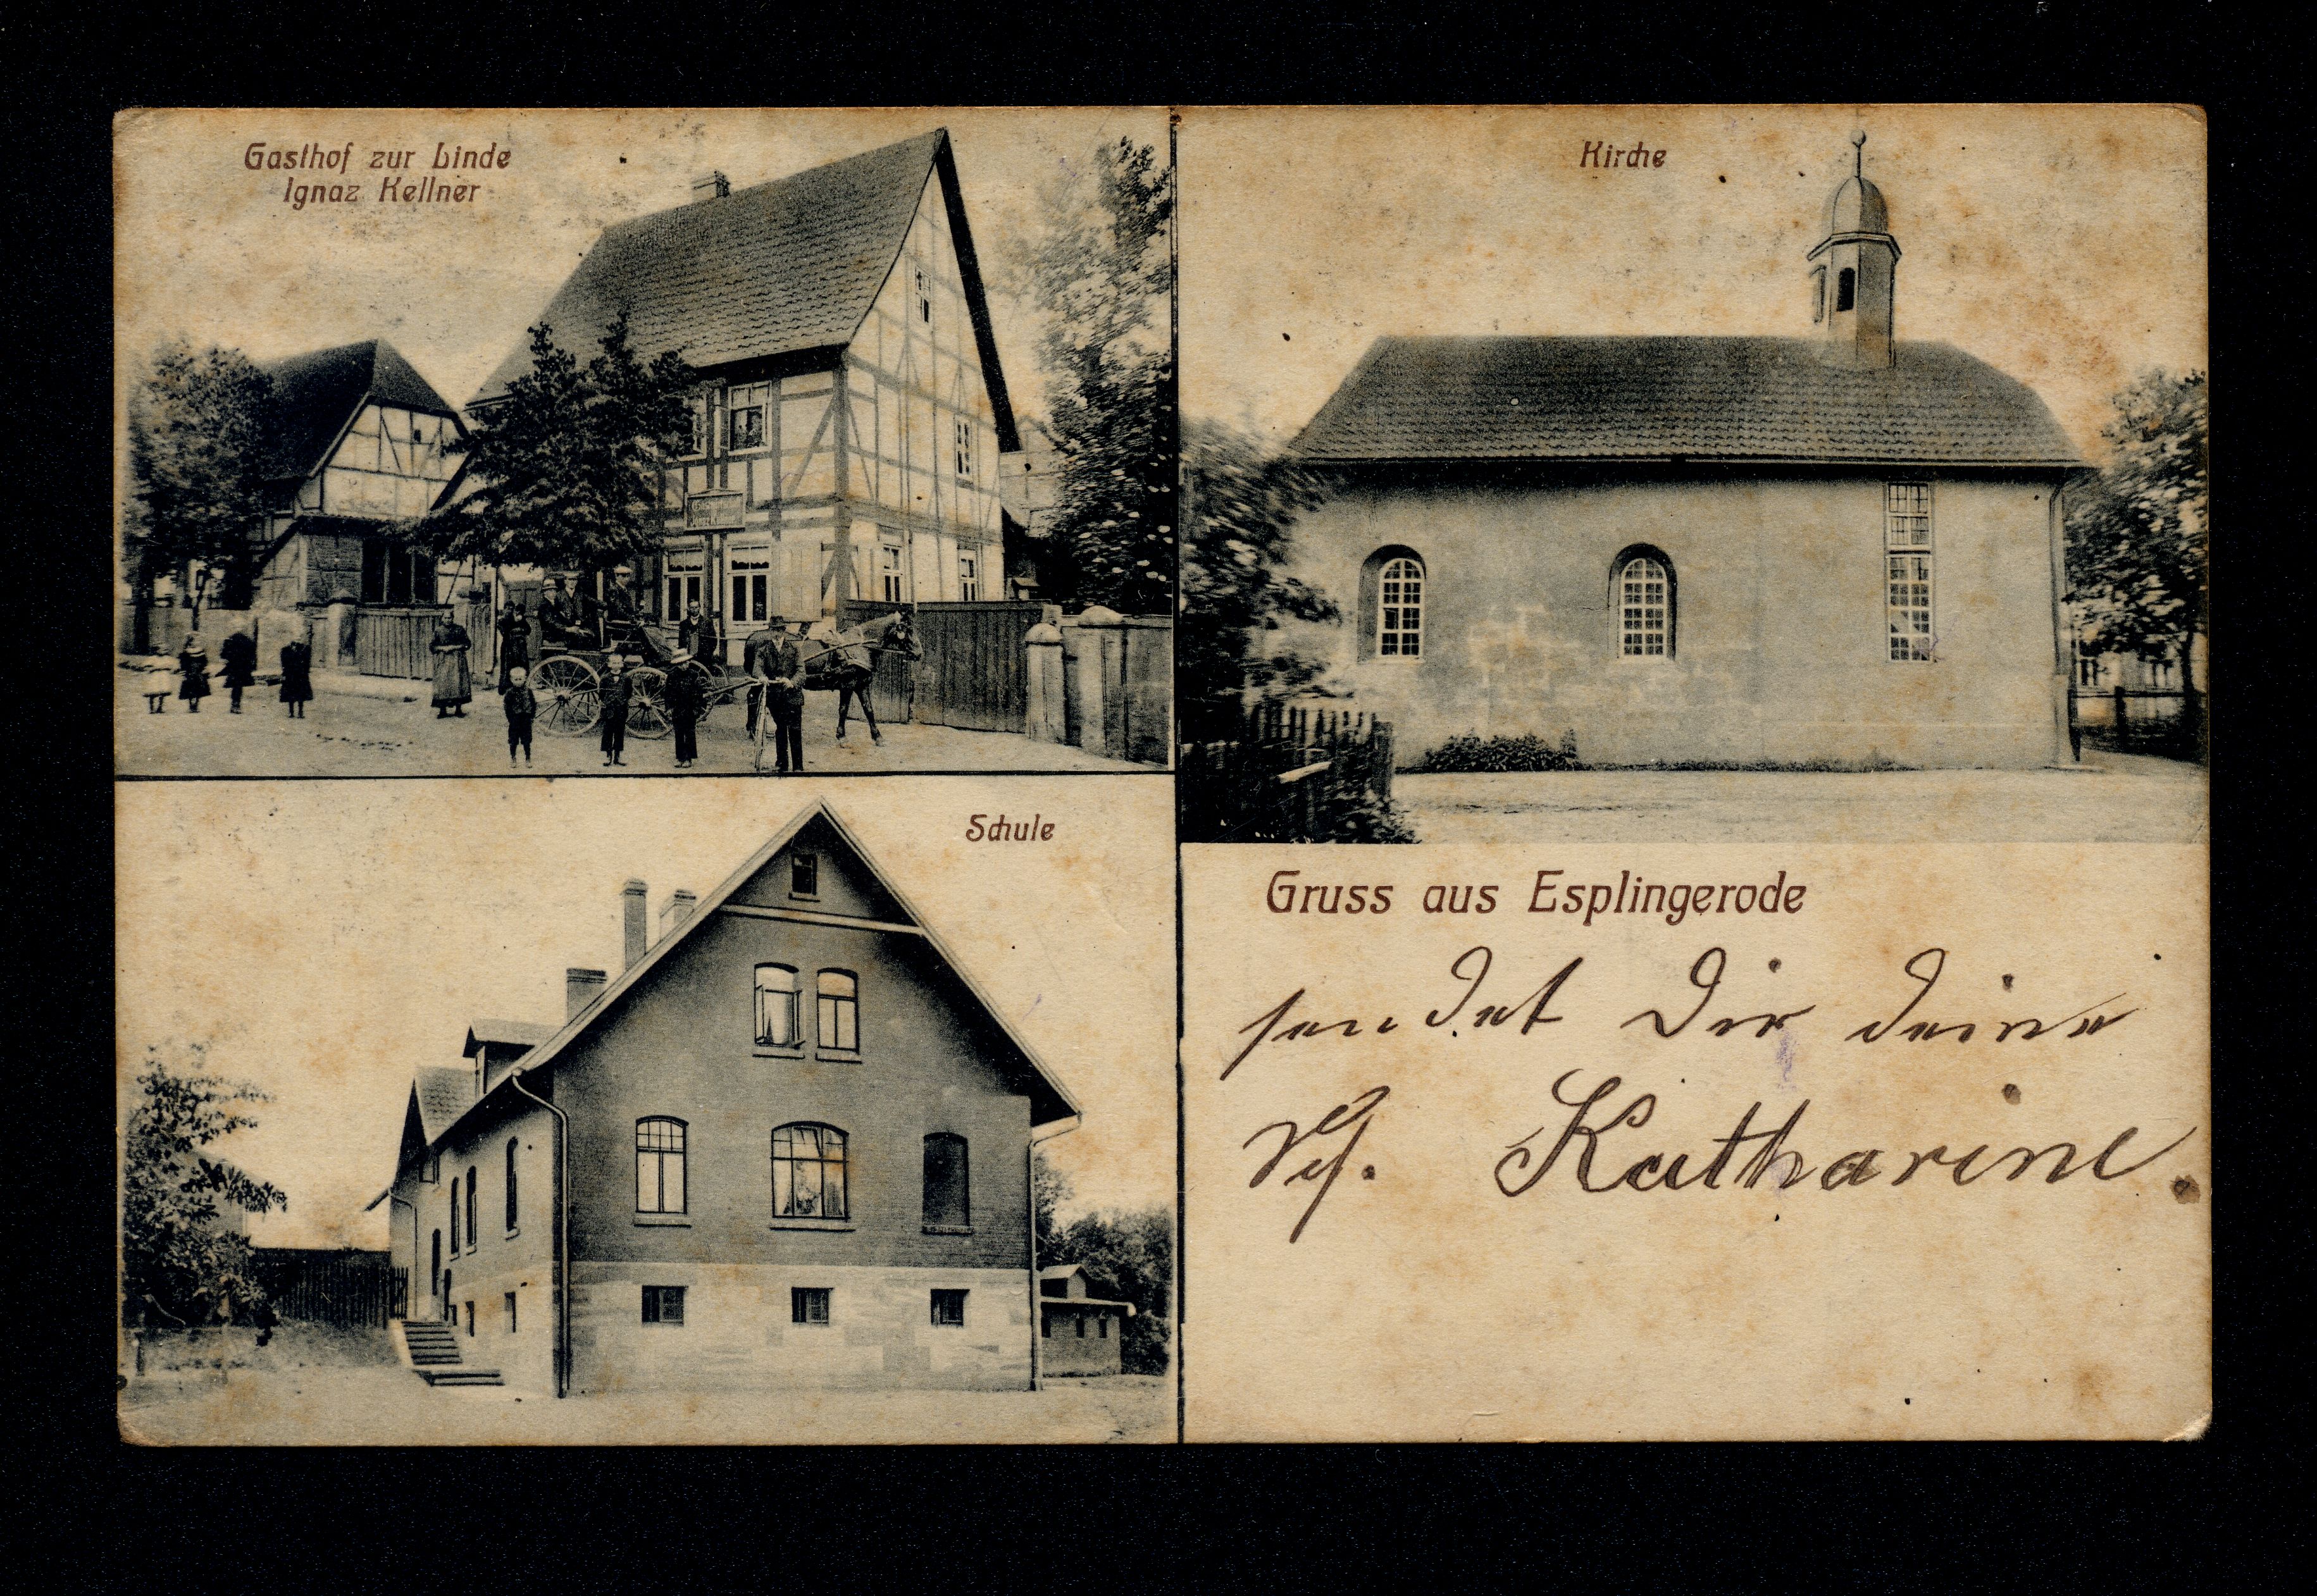 Gasthof zur Linde
Ignaz Kellner
Kirche
Schule
Gruss aus Esplingerode
sendet Dir deine
Katharine.